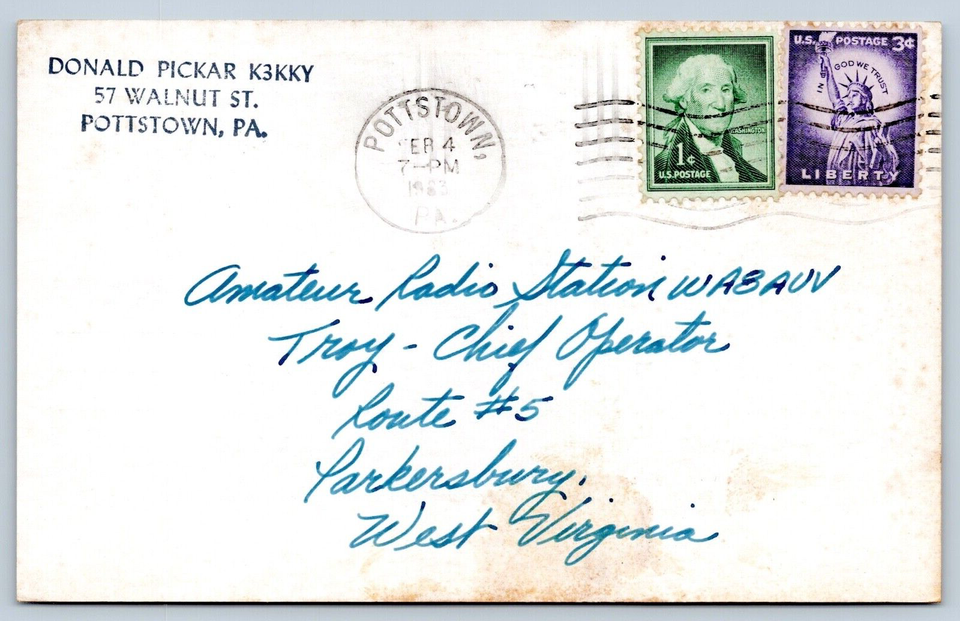 DONALD PICKAR K3KKY
57 WALNUT ST.
POTTSTOWN, PA.
POTTSTOWN,
FEB 4
7-PM
1963
PA.
WASHINGTON
1¢
U.S. POSTAGE
U.S. POSTAGE 3¢
IN GOD WE TRUST
LIBERTY
Amateur Radio Station WA8AUV
Troy - Chief Operator
Route #5
Parkersburg,
West Virginia